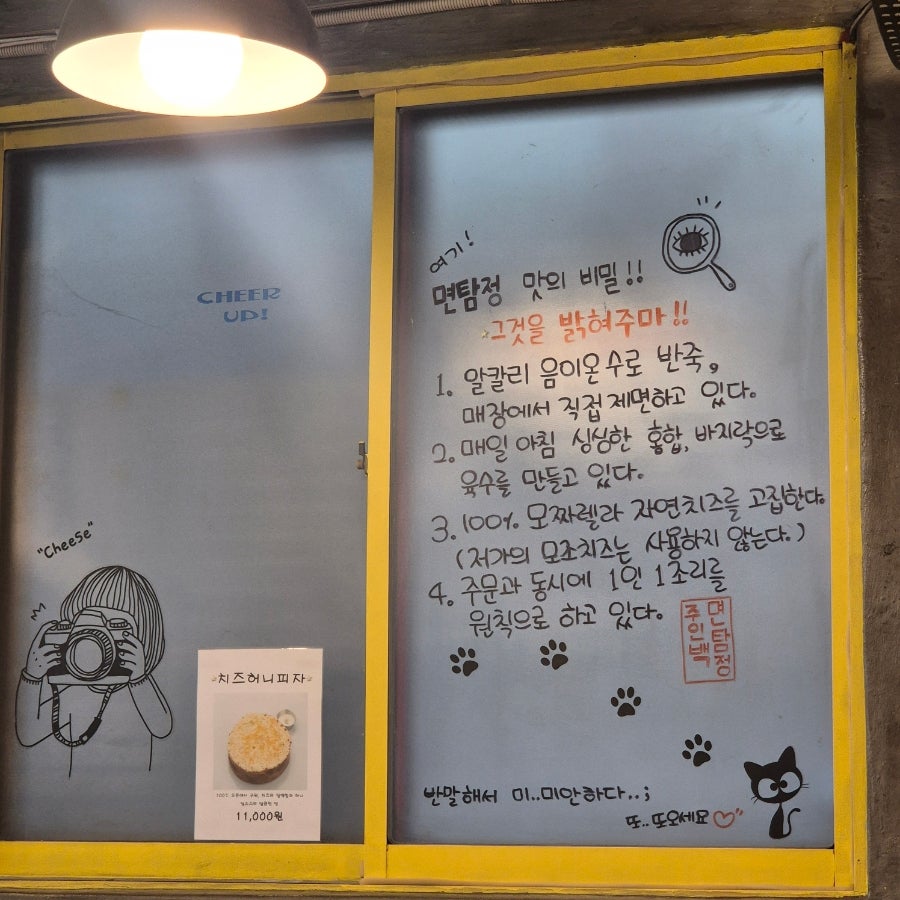 CHEER
UP!
"Cheese"
치즈허니피자
11,000원
여기!
면탐정 맛의 비밀!!
그것을 밝혀주마!!
1. 알칼리 음이온수로 반죽,
매장에서 직접 제면하고 있다.
2. 매일 아침 싱싱한 홍합, 바지락으로
육수를 만들고 있다.
3. 100% 모짜렐라 자연치즈를 고집한다.
(저가의 모조치즈는 사용하지 않는다.)
4. 주문과 동시에 1인 1조리를
원칙으로 하고 있다.
면탐정
주인백
반말해서 미..미안하다..;
또..또오세요